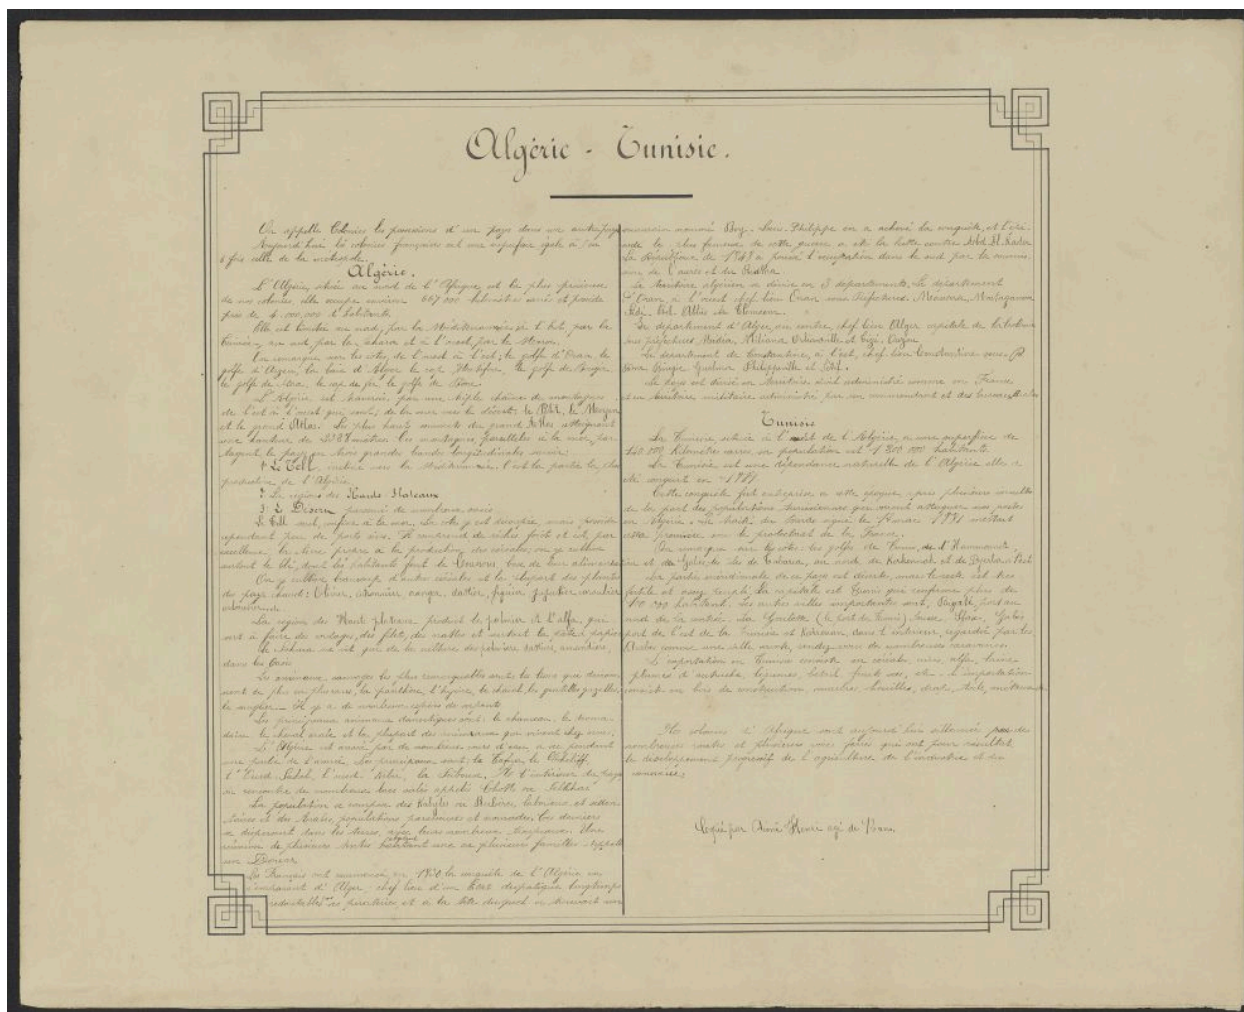 Algérie - Tunisie.
On appelle Colonies les possessions d'un pays dans un autre pays
Aujourd'hui les colonies françaises ont une superficie égale à
6 fois celle de la métropole.
Algérie.
L'Algérie, située au nord de l'Afrique, est la plus
de nos colonies elle occupe environ 667 000 kilomètres carrés et possède
près de 4.000.000 d'habitants.
Elle est limitée au nord, par la Méditerranée, à l'Est, par la
Tunisie, au sud par le Sahara et à l'ouest, par le Maroc.
On remarque sur les côtes, de l'ouest à l'est; le golfe d'Oran, le
golfe d'Arzew, la baie d'Alger le cap Matifou, le golfe de Bougie
le golfe de Stora, le cap de fer, le golfe de Bône.
L'Algérie est traversée par une triple chaîne de montagnes
de l'est à l'ouest qui sont; de la mer vers le désert; le Petit, le Moyen
et le grand Atlas. Les plus hauts sommets du grand Atlas atteignent
une hauteur de mètres. Ces montagnes, parallèles à la mer, par
tagent le pays en trois grandes bandes longitudinales savoir:
1° Le Tell, incliné vers la Méditerranée. C'est la partie la plus
productive de l'Algérie
2° La région des Hauts-Plateaux
3° Le Désert parsemé de nombreuses oasis.
Le Tell
cependant peu de ports sûrs. Il
excellence, la terre propre à la production des céréales, on y cultive
surtout le blé, dont les habitants font le Couscous, base de leur aliments
On y cultive beaucoup d'autres céréales et la plupart des plantes
des pays chauds: Olivier, citronnier oranger, dattier, figuier
La région des Hauts plateaux produit le palmier et l'alfa, qui
sert à faire des cordages, des filets, des nattes et surtout la pâte à papier
Le Sahara
dans les Oasis
Les animaux sauvages les plus remarquables sont: les lions qui devien
nent de plus en plus rares, la panthère, l'hyène, le chacal, les gentilles gazelles,
le sanglier Il y a de nombreuses espèces de serpents
Les principaux animaux domestiques sont: le chameau, le droma-
daire, le cheval arabe et la plupart des animaux qui vivent chez nous.
L'Algérie est arrosée par de nombreux cours d'eau, à sec pendant
une partie de l'année. Les principaux sont; la Tafna, le Chéliff,
l'Oued-Sahel, l'oued-Kébir, la Seybouse. A l'intérieur du pays
on rencontre de nombreux lacs salés appelés Chotts ou Sebkhas
La population se compose des Kabyles ou Berbères, laborieux et séden
taires et des Arabes, populations paresseuses et nomades. Ces derniers
se dispersent dans les terres, avec leurs nombreux troupeaux. Une
réunion de plusieurs tentes abritant une ou plusieurs familles s'appelle
un Douar
Les Français ont commencé, en 1830 la conquête de l'Algérie en
s'emparant d'Alger, chef lieu d'un Etat despotique longtemps
redoutable
nommé Bey. Louis-Philippe en a achevé la conquête, et l'épi-
sode le plus fameux de cette guerre a été la lutte contre Abd-El-Kader
La République de 1848 a poussé l'occupation dans le sud par la soumis
sion de l'Aurès et des
Le territoire algérien se divise en 3 départements. Le département
d'Oran, à l'ouest chef-lieu Oran sous-Préfectures, Mascara, Mostaganem
Sidi-Bel-Abbès et Tlemcen.
Le département d'Alger au centre, chef lieu Alger capitale de
sous-préfectures Médéa, Miliana Orléanville et Tizi-Ouzou
Le département de Constantine, à l'est, chef-lieu Constantine
Bône Bougie Guelma Philippeville et Sétif.
Le pays est divisé en territoire civil administré comme en France
et en territoire militaire administré par un commandant et des
Tunisie
La Tunisie, située à l'est de l'Algérie, a une superficie de
kilomètres carrés, sa population est 1 500 000 habitants.
La Tunisie est une dépendance naturelle de l'Algérie elle a
été conquise en 1881
Cette conquête fut entreprise à cette époque, après plusieurs
de la part des populations tunisiennes qui vinrent attaquer nos postes
en Algérie. Le traité du Bardo signé le 1881
sous le protectorat de la France.
On remarque sur les côtes les golfes de Tunis, de l'Hammamet,
et de Gabès, les îles de Tabarca, au nord, de Kerkennah et de Djerba à l'est
La partie méridionale de ce pays est déserte, mais le reste est très
fertile et assez peuplé. La capitale est Tunis qui renferme plus de
habitants. Les autres villes importantes sont, port au
nord La Goulette (le port de Tunis) Sousse, Sfax, Gabès,
port de l'est de la Tunisie et Kairouan, dans l'intérieur, regardé par les
Arabes comme une ville sainte, rendez-vous de nombreuses caravanes
L'exportation en Tunisie consiste en céréales, alfa, laine
plumes d'autruche, légumes, bétail fruits secs, etc. L'importation
consiste en bois de construction, marbre, houilles,
Nos colonies d'Afrique sont aujourd'hui sillonnées par de
nombreuses routes et plusieurs voies ferrées qui ont pour résultat
le développement progressif de l'agriculture de l'industrie et du
commerce.
Copié par Aimé Henri